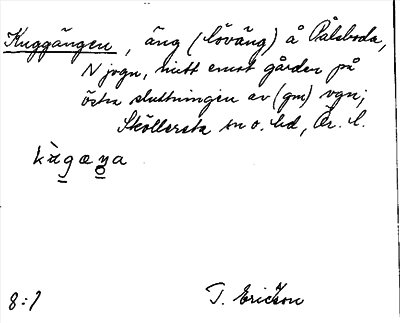 Kuggängen, äng (löväng) å Pålsboda,
N jvgn, mitt emot gården på
östra sluttningen av (gm) vgn;
Sköllersta sn o. hd, Ör. l.
kàgæŋa
8:1
T. Ericson